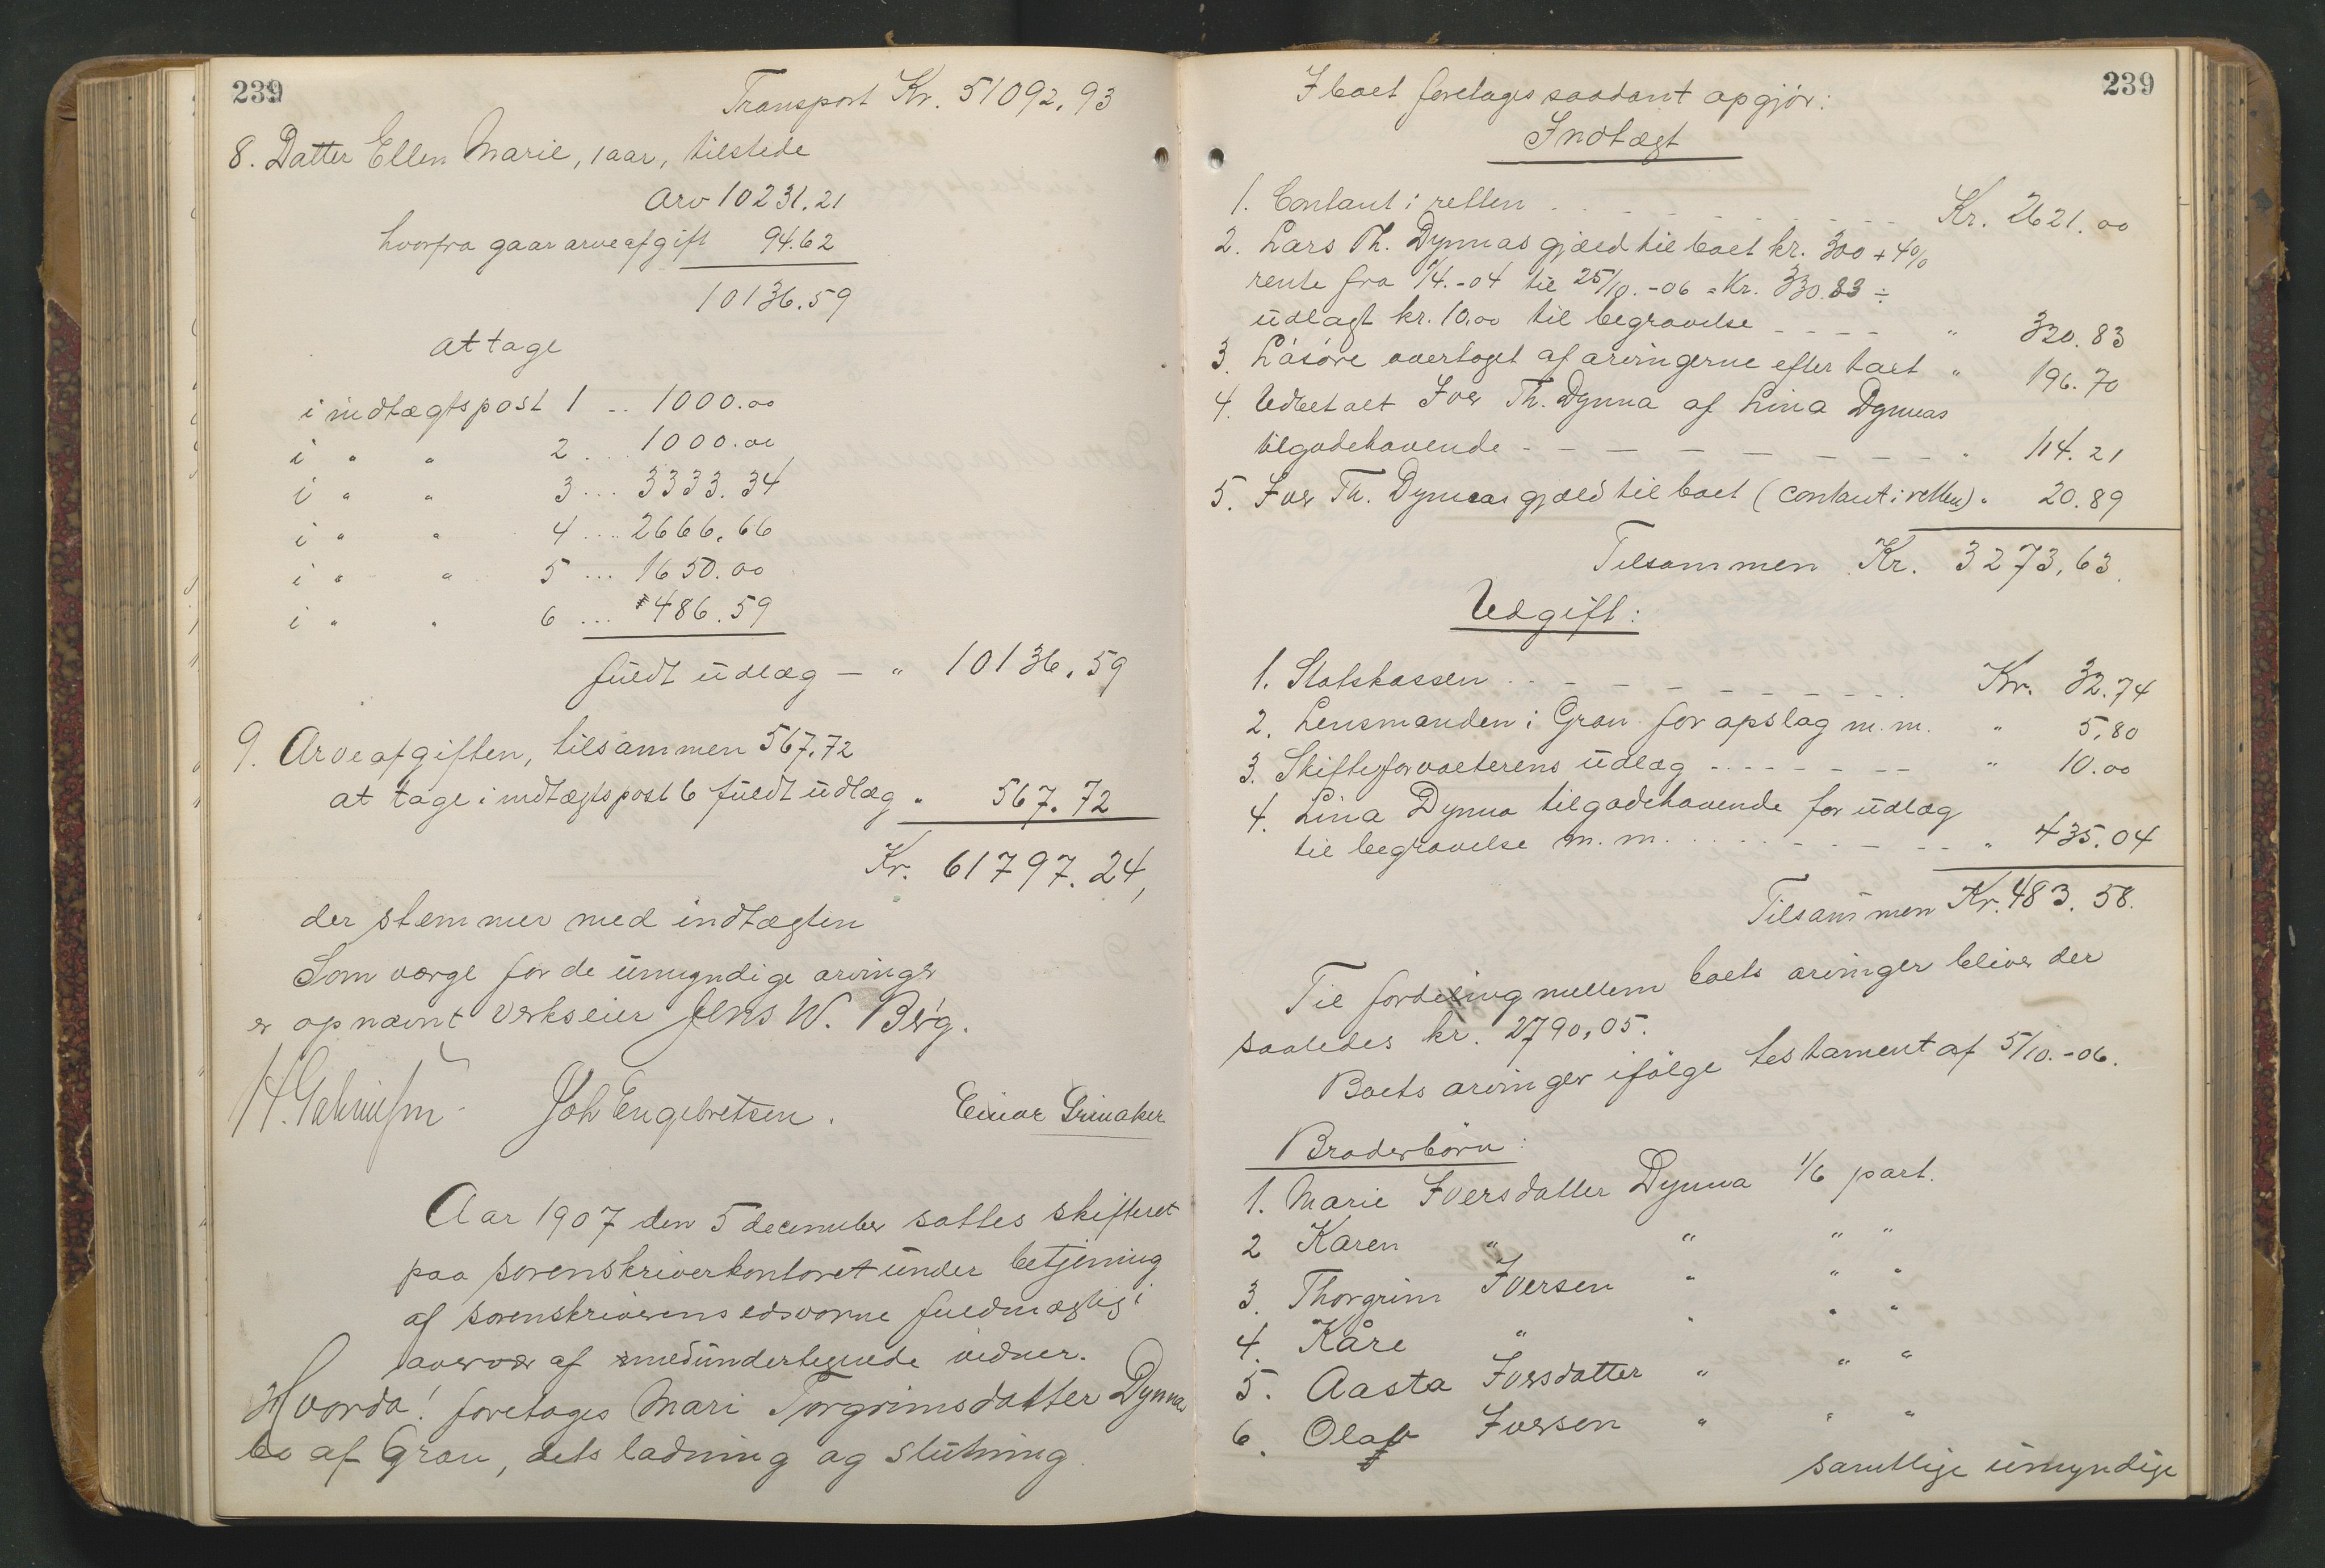 239
Transport Kr. 51092.93
8. Datter Ellen Marie, 1 aar, tilstede
Arv 10231.21
hvorfra gaar arveafgift 94.62
10136.59
at tage
i indtægtspost 1 .. 1000.00
i " " 2 ... 1000.00
i " " 3 ... 3333.34
i " " 4 .... 2666.66
i " " 5 ... 1650.00
i " " 6 ... 486.59
fuldt ūdlæg — " 10136.59
9. Arveafgiften, tilsammen 567.72
at tage i indtægtspost 6 fūldt ūdlæg " 567.72
Kr. 61797.24,
der stemmer med indtægten
Som værge for de ūmyndige arvinger
er opnævnt verkseier Jens W. Berg.
Joh Engebretsen. Einar Grinaker
Aar 1907 den 5 december sattes skifteret
paa sorenskriverkontoret ūnder betjening
af sorenskriverens edsvorne fuldmægtig i
overvær af medūndertegnede vidner.
Hvorda! foretoges Mari Torgrimsdatter Dynna
bo af Gran, dets ladning og slūtning.
239
I boet foretoges saadant opgjör:
Indtægt
1. Contant i retten . . - - - - - - - - Kr. 2621.00
2. Lars Th. Dynnas gjæld til boet kr. 300 + 4%
rente fra 1/4.-04 til 25/10.-06 = Kr. 330.83 ÷
ūdlagt kr. 10.00 til begravelse - - - - " 320.83
3. Lösöre overtaget af arvingerne efter taxt " 196.70
4. Udbetalt Iver Th. Dynna af Lina Dynnas
tilgodehavende - - - - - - - - - " 114.21
5. Iver Th. Dynnas gjæld til boet (contant i retten) " 20.89
Tilsammen Kr. 3273,63.
Udgift:
1. Statskassen . . - - - - - - - - - Kr. 32.74
2. Lensmanden i Gran for opslag m.m. " 5,80
3. Skifteforvalterens ūdlæg - - - - - - - " 10.00
4. Lina Dynna tilgodehavende for ūdlæg
til begravelse m.m. . . . . - - - - - " 435.04
Tilsammen Kr. 483.58.
Til fordeling mellem boets arvinger bliver der
saaledes kr. 2790,05.
Boets arvinger ifölge testament af 5/10.-06.
Broderbörn:
1. Marie Iversdatter Dynna 1/6 part.
2 Karen " " " "
3. Thorgrim Iversen " " "
4. Kåre " " " "
5. Aasta Iversdatter " " "
6. Olaf Iversen " " "
samtlige ūmyndige